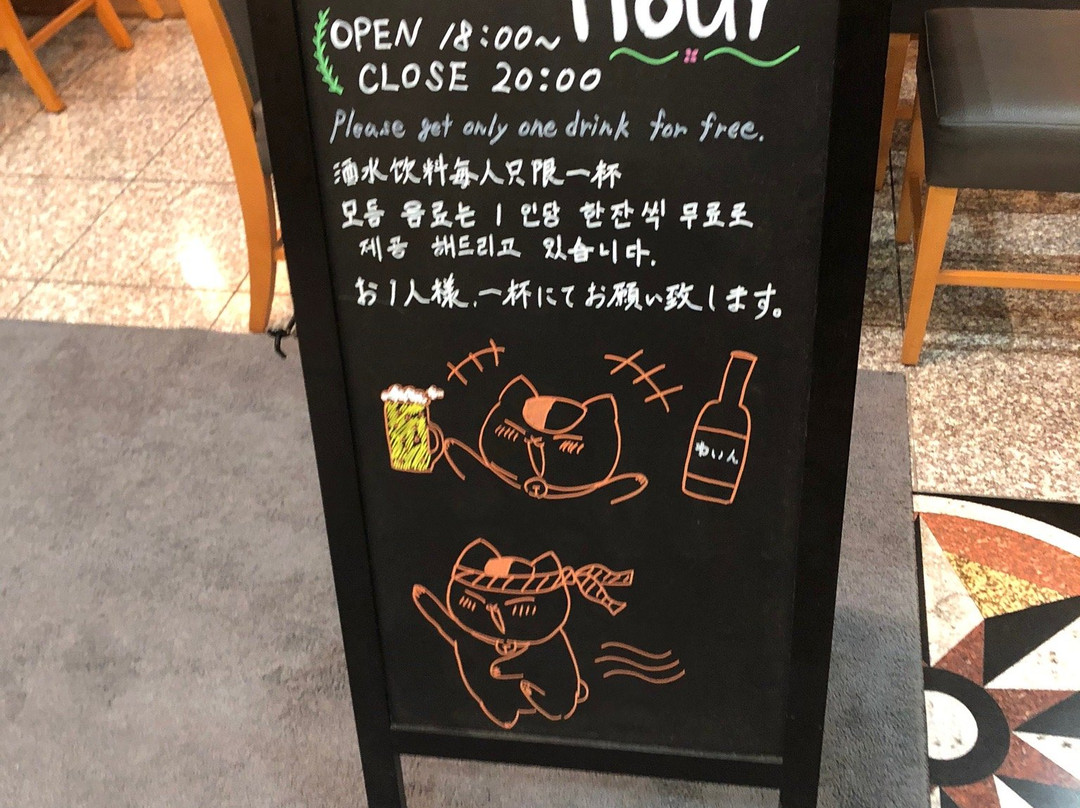 Hour
OPEN 18:00~
CLOSE 20:00
Please get only one drink for free.
酒水饮料每人只限一杯
모등 음료는 1 인당 한잔씩 무료로
제공 해드리고 있습니다.
お1人様、一杯にてお願い致します。
わいん